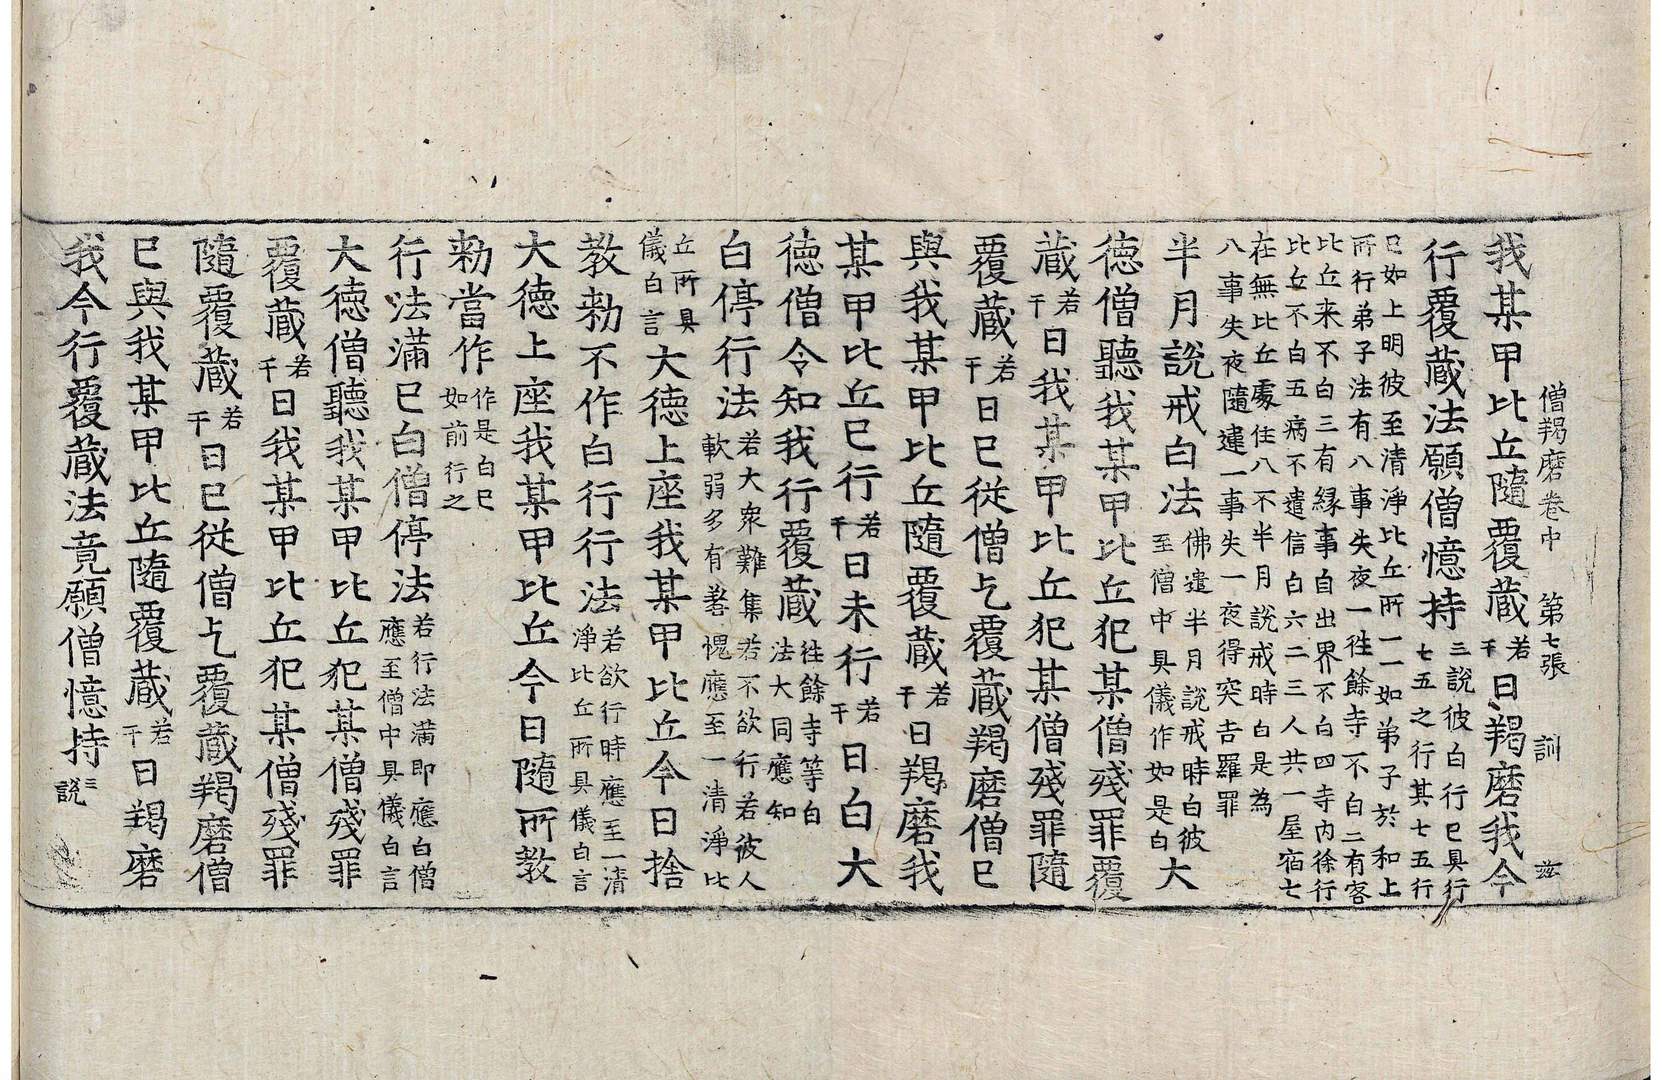 僧羯磨卷中 第七張 訓 茲
我某甲比丘隨覆蔵若干日羯磨我今
行覆蔵法願僧憶持三說彼白行巳具行七五之行其七五行
巳如上明彼至清淨比丘所一一如弟子於和上
所行弟子法有八事失夜一徃餘寺不白二有客
比丘来不白三有緣事自出界不白四寺内徐行
比丘不白五病不遣信白六二三人共一屋宿七
在無比丘處住八不半月說戒時白是為
八事失夜隨違一事失一夜得突吉羅罪
半月說戒白法佛遣半月說戒時白彼至僧中具儀作如是白大
德僧聽我某甲比丘犯某僧殘罪覆
蔵若干日我某甲比丘犯某僧殘罪隨
覆蔵若干日巳從僧乞覆蔵羯磨僧巳
與我某甲比丘隨覆蔵若干日羯磨我
某甲比丘巳行若干日未行若干日白大
德僧令知我行覆蔵徃餘寺等白法大同應知
白停行法若大衆難集若不欲行若彼人軟弱多有羞愧應至一清淨比
丘所具儀白言大德上座我某甲比丘今日捨
教勑不作白行行法若欲行時應至一清淨比丘所具儀白言
大德上座我某甲比丘今日隨所教
勑當作作是白巳如前行之
行法滿巳白僧停法若行法滿即應白僧應至僧中具儀白言
大德僧聽我某甲比丘犯某僧殘罪
覆蔵若干日我某甲比丘犯某僧殘罪
隨覆蔵若干日巳從僧乞覆蔵羯磨僧
巳與我某甲比丘隨覆蔵若干日羯磨
我今行覆蔵法竟願僧憶持三說